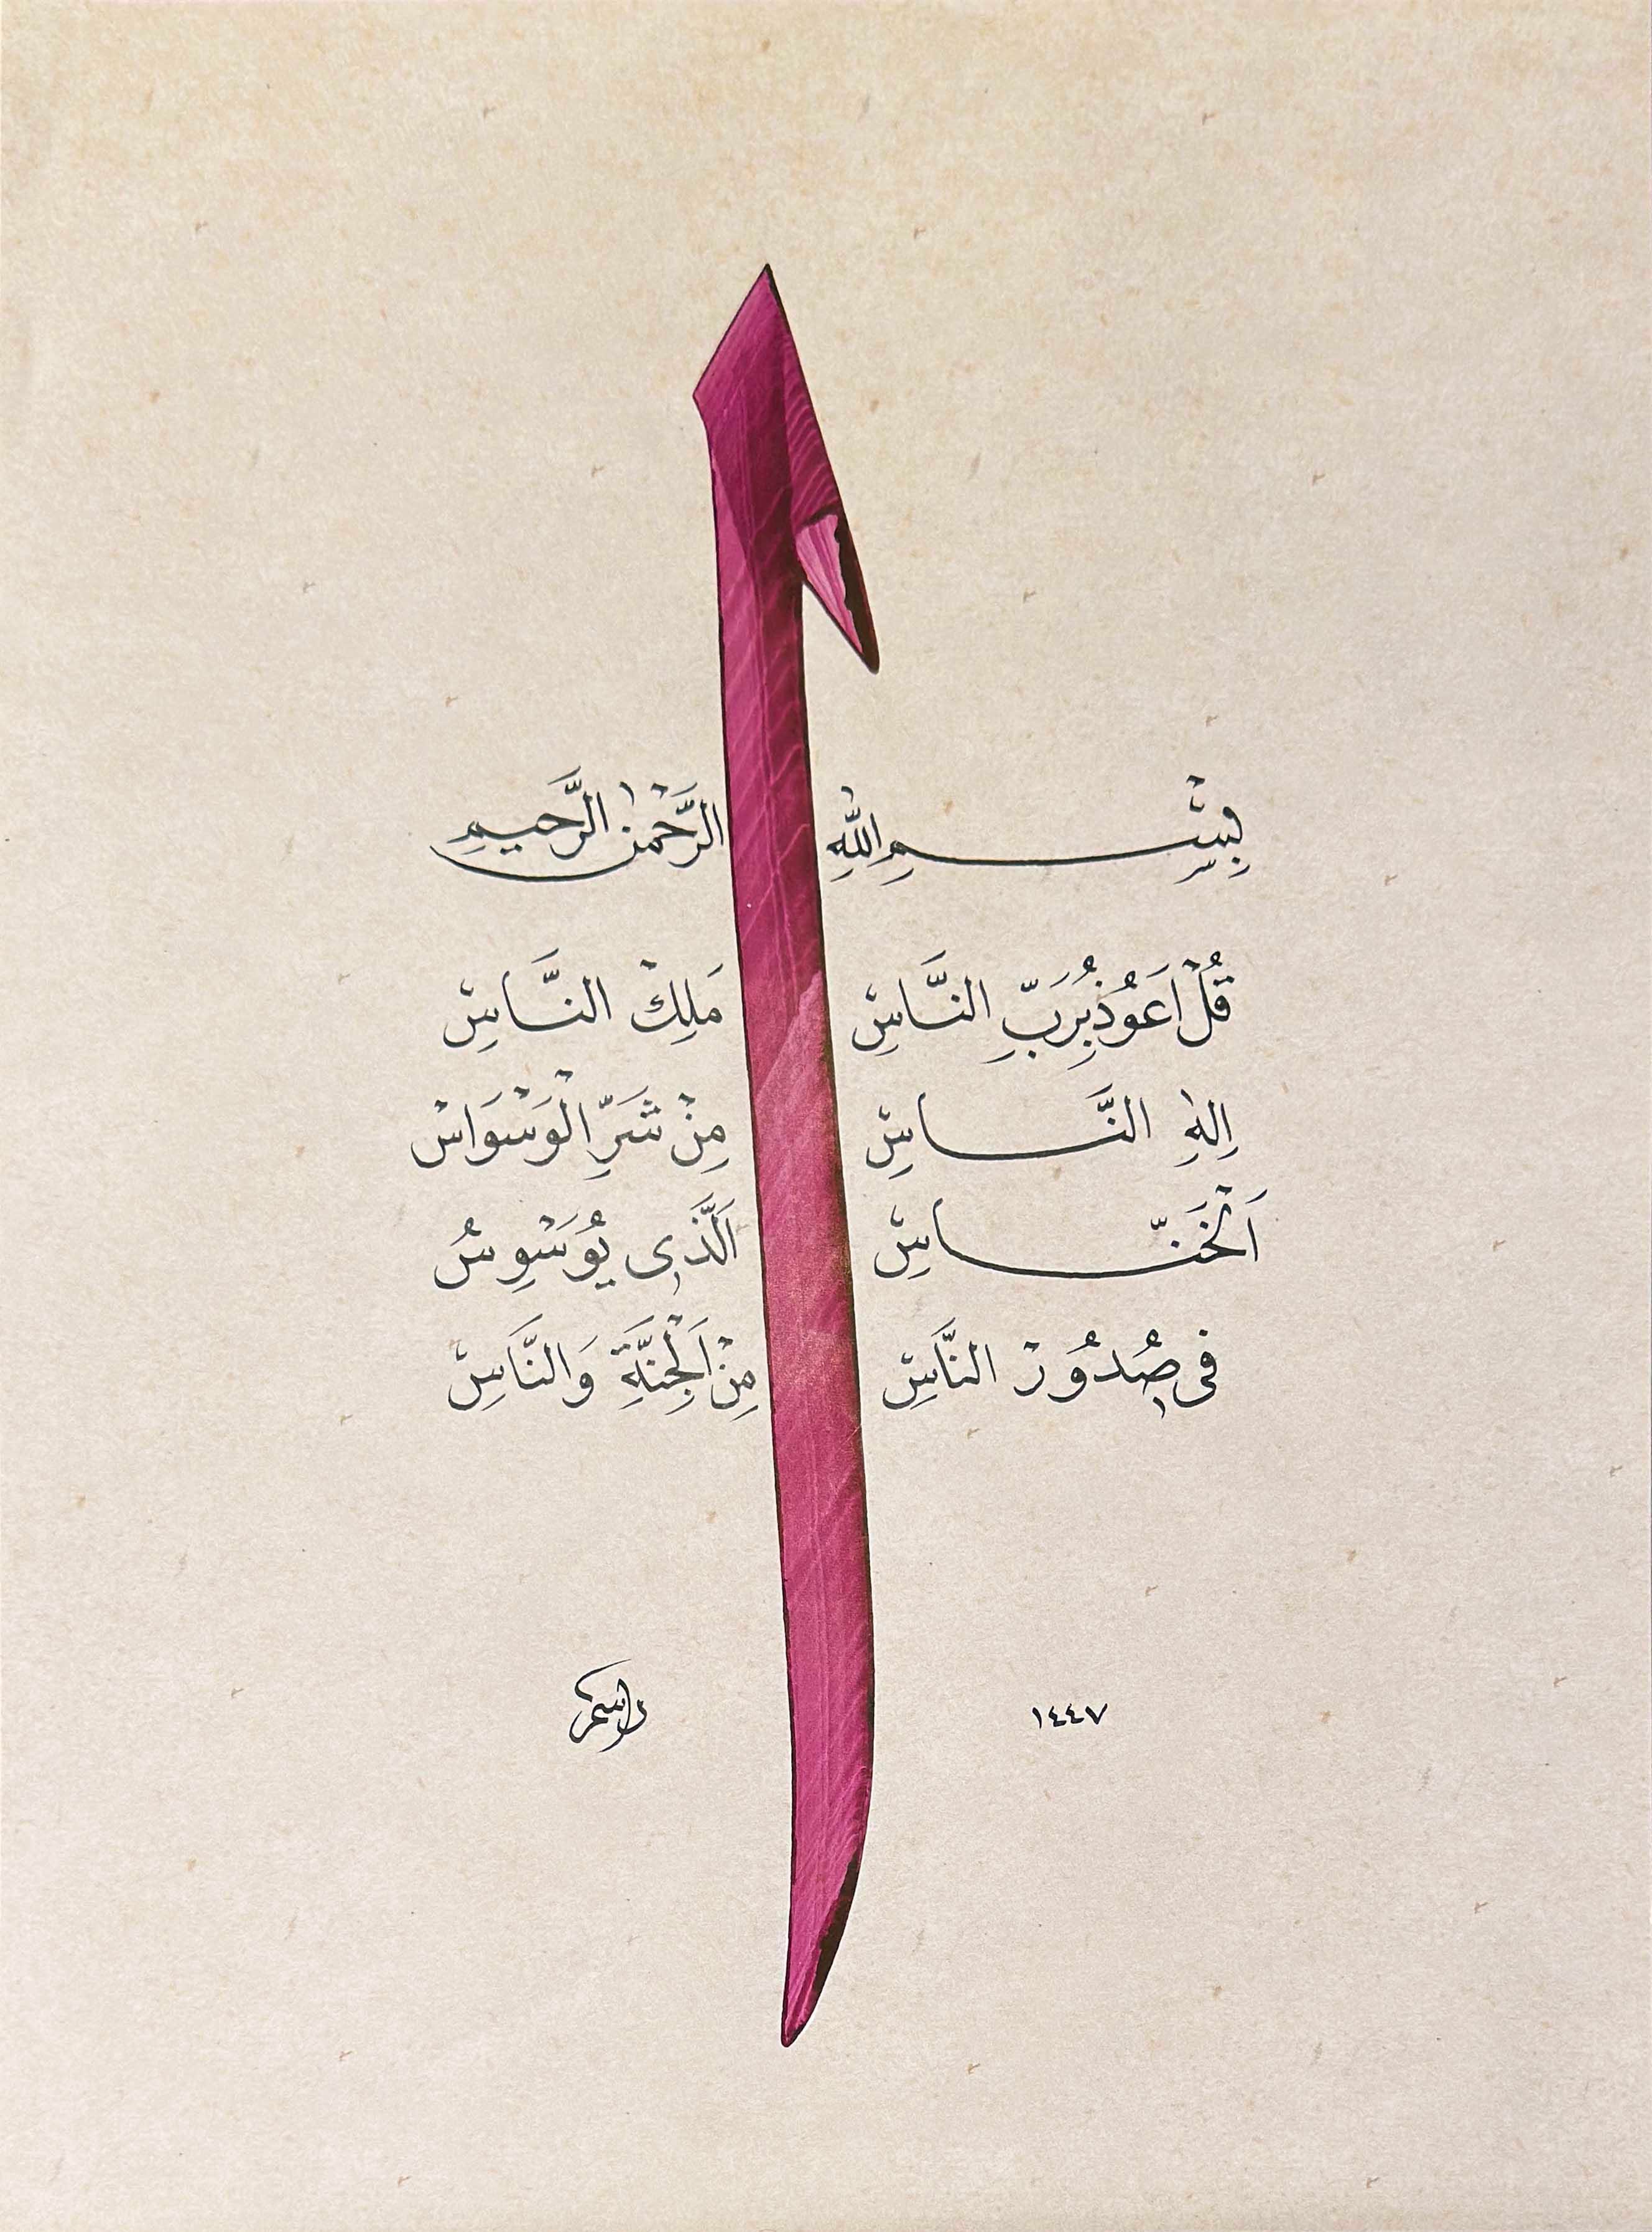 بِسْمِ اللّٰهِ الرَّحْمٰنِ الرَّحِيمِ
قُلْ اَعُوذُ بِرَبِّ النَّاسِ مَلِكِ النَّاسِ
اِلٰهِ النَّاسِ مِنْ شَرِّ الْوَسْوَاسِ
اَلْخَنَّاسِ اَلَّذِى يُوَسْوِسُ
فِى صُدُورِ النَّاسِ مِنَ الْجِنَّةِ وَالنَّاسِ
١٤٤٧